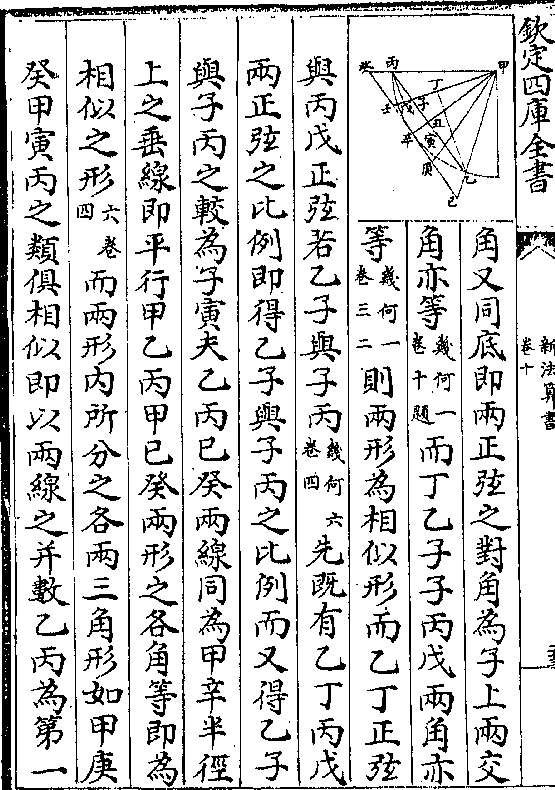 欽定四庫全書
新法算書
卷十
甲
丙
癸
丁
戊子
壬
丑
辛
寅
庚
乙
己
角又同底即兩正弦之對角為子上兩交
角亦等幾何一卷十題而丁乙子子丙戊兩角亦
等幾何一卷三二則兩形為相似形而乙丁正弦
與丙戊正弦若乙子與子丙幾何六卷四先既有乙丁丙戊
兩正弦之比例即得乙子與子丙之比例而又得乙子
與子丙之較為子寅夫乙丙己癸兩線同為甲辛半徑
上之垂線即平行甲乙丙甲己癸兩形之各角等即為
相似之形六卷四而兩形內所分之各兩三角形如甲庚
癸甲寅丙之類俱相似即以兩線之并數乙丙為第一